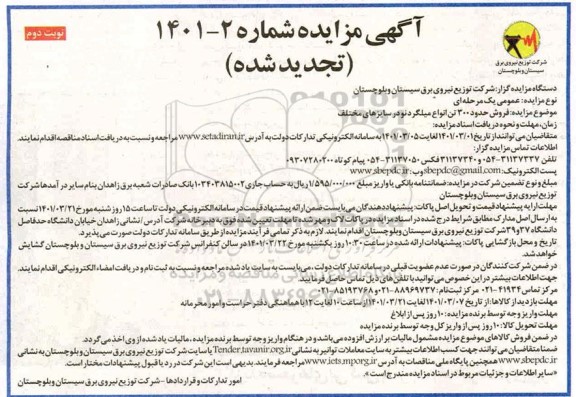 آگهی مزایده شماره ۲-۱۴۰۱
(تجدید شده)
نوبت دوم
شرکت توزیع نیروی برق
سیستان و بلوچستان
دستگاه مزایده گزار: شرکت توزیع نیروی برق سیستان وبلوچستان
نوع مزایده: عمومی یک مرحله ای
موضوع مزایده: فروش حدود ۳۰۰ تن انواع میلگرد نو در سایزهای مختلف
زمان، مهلت و نحوه دریافت اسناد مزایده:
متقاضیان می توانند از تاریخ ۱۴۰۱/۰۳/۰۱ لغایت ۱۴۰۱/۰۳/۰۵ به سامانه الکترونیکی تدارکات دولت به آدرس www.setadiran.ir مراجعه و نسبت به دریافت اسناد مناقصه اقدام نمایند.
اطلاعات تماس مزایده گزار:
تلفن ۳۱۱۳۷۳۳۷-۰۵۴ و ۳۱۱۳۷۳۴۰ فکس ۳۱۱۳۷۰۵۰-۰۵۴ پیام کوتاه ۰۹۳۰۷۲۸۰۲۰۰
پست الکترونیک: sbepdc@gmail.com وب: www.sbepdc.ir
مبلغ و نوع تضمین شرکت در مزایده: ضمانتنامه بانکی یا واریز مبلغ ۱/۵۹۵/۰۰۰/۰۰۰ ریال به حساب جاری ۱۰۳۴۰۳۸۱۵۰۰۲ بانک صادرات شعبه برق زاهدان بنام سایر در آمدها شرکت
توزیع نیروی برق سیستان وبلوچستان
مهلت ارایه پیشنهاد قیمت و تحویل اصل پاکات: پیشنهاددهندگان می بایست ضمن ارائه پیشنهاد قیمت در سامانه الکترونیکی دولت تا ساعت ۱۵ روز شنبه مورخ ۱۴۰۱/۰۳/۲۱ نسبت
به ارسال اصل مدارک مطابق شرایط درج شده در اسناد مزایده در پاکات لاک و مهر شده تا مهلت تعیین شده فوق به دبیرخانه شرکت آدرس: نشانی زاهدان خیابان دانشگاه حدفاصل
دانشگاه ۳۷ و ۳۹ شرکت توزیع نیروی برق سیستان وبلوچستان اقدام نمایند. لازم به ذکر تمامی فرآیند مزایده از طریق سامانه تدارکات دولت صورت می پذیرد.
تاریخ و محل بازگشایی پاکات: پیشنهادات ارائه شده در ساعت ۱۰:۳۰ روز یکشنبه مورخ ۱۴۰۱/۰۳/۲۲ در سالن کنفرانس شرکت توزیع نیروی برق سیستان وبلوچستان گشایش
خواهد شد.
در ضمن شرکت کنندگان در صورت عدم عضویت قبلی در سامانه تدارکات دولت ، می بایست به سایت یاد شده مراجعه و نسبت به ثبت نام و دریافت امضاء الکترونیکی اقدام نمایند.
جهت اطلاعات بیشتر در این خصوص می توانید با تلفن های ذیل تماس حاصل فرمایید
مرکز تماس: ۴۱۹۳۴-۰۲۱ مرکز ثبت نام: ۸۸۹۶۹۷۳۷-۰۲۱ و ۸۵۱۹۳۷۶۸-۰۲۱
مهلت بازدید از کالاها: از تاریخ ۱۴۰۱/۰۳/۰۷ لغایت ۱۴۰۱/۰۳/۲۱ از ساعت ۱۰ لغایت ۱۲ با هماهنگی دفتر حراست و امور محرمانه
مهلت واریز وجه توسط برنده مزایده: ۱۰ روز پس از ابلاغ
مهلت تحویل کالا: ۱۰ روز پس از واریز کل وجه توسط برنده مزایده
در ضمن فروش کالاهای موضوع مزایده مشمول مالیات بر ارزش افزوده می باشد و در هنگام واریز وجه توسط برنده مزایده ، مالیات یاد شده از وی اخذ می گردد.
ضمنا متقاضیان می توانند جهت کسب اطلاعات بیشتر به سایت معاملات توانیر به نشانی Tender.tavanir.org.ir یا سایت شرکت توزیع نیروی برق سیستان وبلوچستان به نشانی
www.sbepdc.ir همچنین پایگاه ملی مناقصات به آدرس www.iets.mporg.ir مراجعه فرمایند. بدیهی است این شرکت در رد یا قبول پیشنهادات مختار است.
«سایر اطلاعات و جزئیات مربوط در اسناد مزایده مندرج است».
امور تدارکات و قراردادها - شرکت توزیع نیروی برق سیستان و بلوچستان